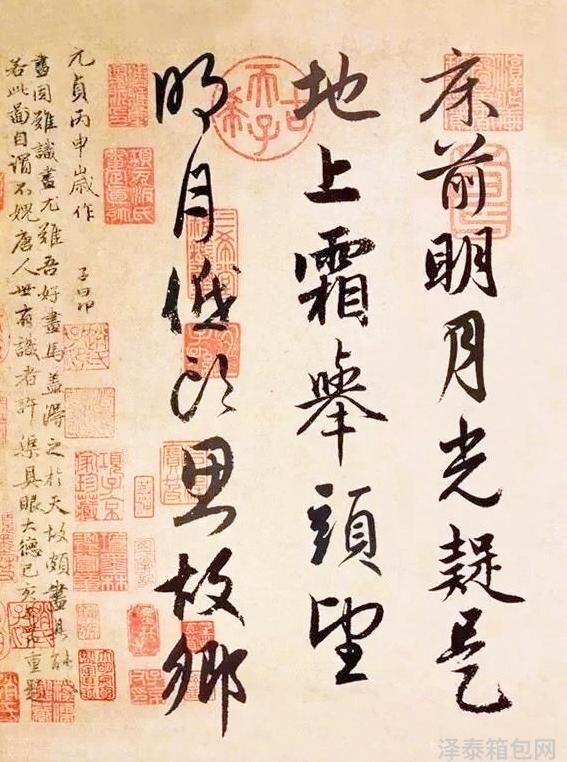 床前明月光疑是
地上霜舉頭望
明月低头思故鄉
元貞丙申歲作 子昂
畫固難識畫尤難吾好畫馬蓋得之於天故頗盡其能事
若此圖自謂不愧唐人世有識者許渠具眼大德己亥子昂重題
古希天子
項子京家珍藏
泽泰箱包网